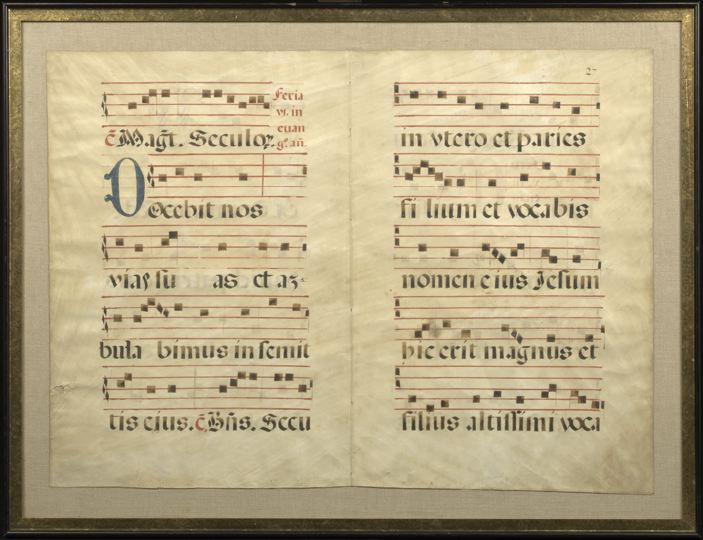 c̃ Mag̃t. Seculoꝝ.
Feria
vj. in
euan
g. añ.
Docebit nos
vias su as et az-
bula bimus in semit
tis ejus. c̃ Bñs. Secu
27
in vtero et paries
fi lium et vocabis
nomen e ius Jesum
hic erit magnus et
filius altissimi voca